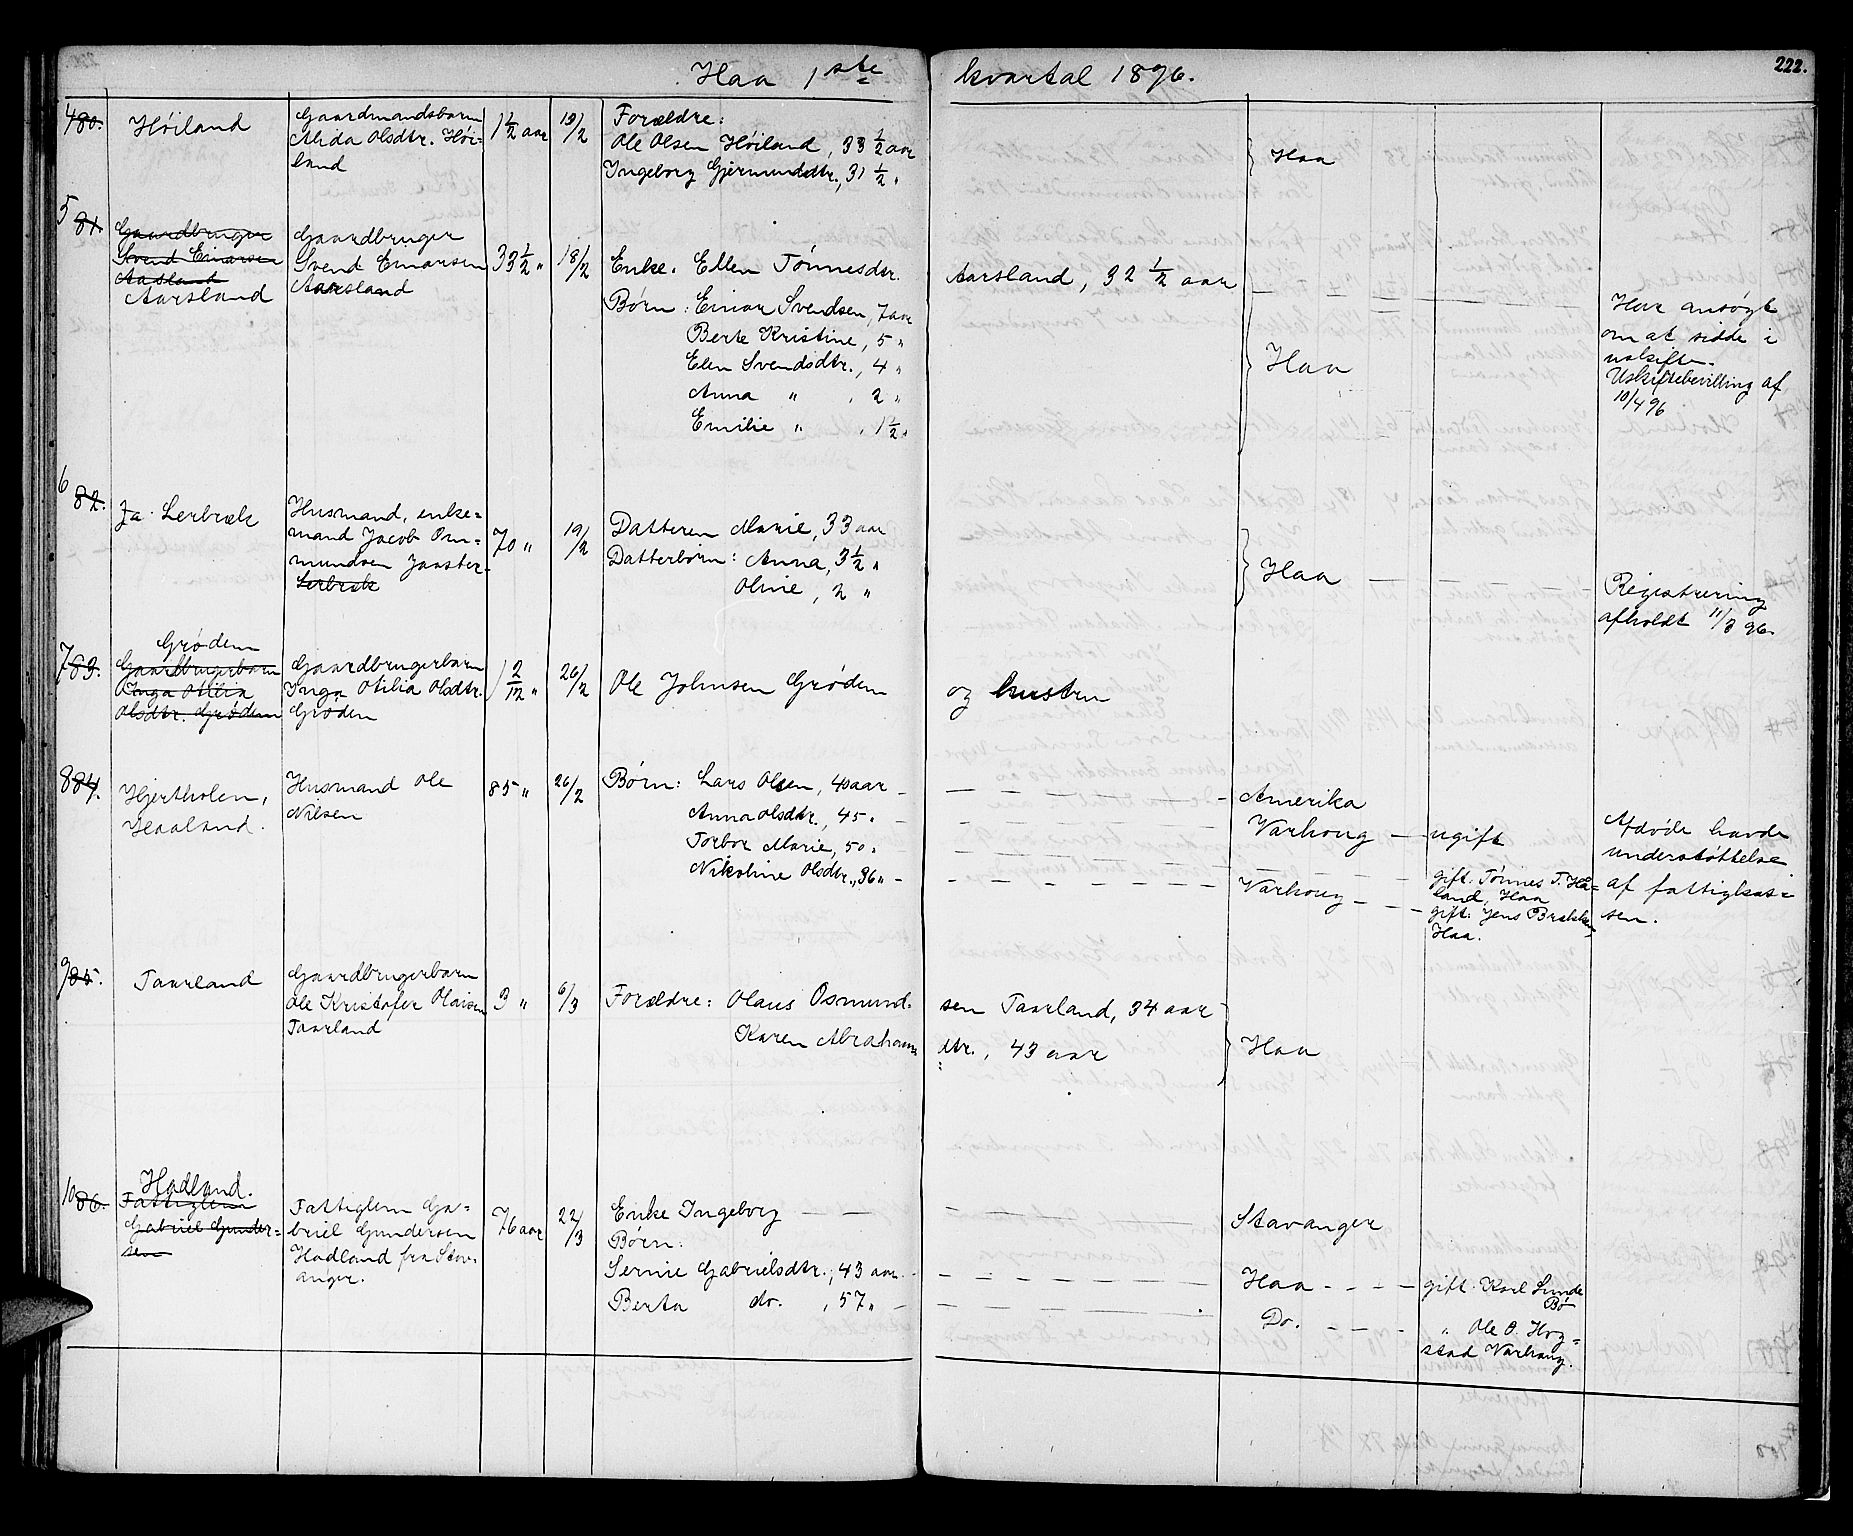 Haa 1ste kvartal 1896.
222.
4 80. Høiland
Gaardmandsbarn
Alida Olsdtr. Høi-
land
1 1/2 aar 19/2
Forældre:
Ole Olsen Høiland, 33 1/2 aar
Ingeborg Gjermundsdtr., 31 1/2 "
Haa
5 81.
Gaardbruger
Svend Einarsen
Aasland
Aarsland
Gaardbruger
Svend Einarsen
Aarsland
33 1/2 " 18/2
Enke: Ellen Tønnesdtr. Aarsland, 32 1/2 aar
Børn: Einar Svendsen, 7 aar
Berte Kristine, 5 "
Elen Svendsdtr., 4 "
Anna " , 2 "
Emilie " , 1 1/2 "
Haa
Har ansøgt
om at sidde i
uskifte.
Uskiftebevilling af
10/4 96
6 82. Ja. Lerbræk
Husmand, enke=
mand Jacob Om=
mundsen Jaaster-
Lerbræk
70 " 19/2
Datteren Marie, 33 aar
Datterbørn: Anna, 3 1/2 "
Oline, 2 "
Haa
Registrering
afholdt 11/3 96.
7 83.
Grødem
Gaardbrugerbarn
Inga Otilia
Olsdtr. Grødem
Gaardbrugerbarn
Inga Otilia Olsdtr.
Grødem
2/12 " 26/2
Ole Johnsen Grødem og hustru
8 84.
Hjertholen,
Haaland.
Husmand Ole
Nilsen
85 " 26/2
Børn: Lars Olsen, 40 aar - Amerika
Anna Olsdtr., 45 " - Varhoug - ugift
Torbor Marie, 50 " - gift. Tønnes T. Ha=
land, Haa
Nikoline Olsdtr., 36 " - Varhoug - gift: Jens Brækken
Haa.
Afdøde havde
understøttelse
af fattigkas=
sen.
9 85. Taarland
Gaardbrugerbarn
Ole Kristofer Olaisen
Taarland
3 " 6/3
Forældre: Olaus Osmundsen Taarland, 34 aar
Karen Abrahamsdtr., 43 aar
Haa
10 86.
Hadland.
Fattiglem
Gabriel Gunder=
sen
Fattiglem Ga=
briel Gundersen
Hadland fra Stav-
anger.
76 aar 22/3
Enke Ingeborg - - Stavanger
Børn:
Sernie Gabrielsdtr., 43 aar - Haa - gift. Karl Lunde
Bø
Berta do. , 57 " - Do. - " Ole O. Hog=
stad Varhaug.